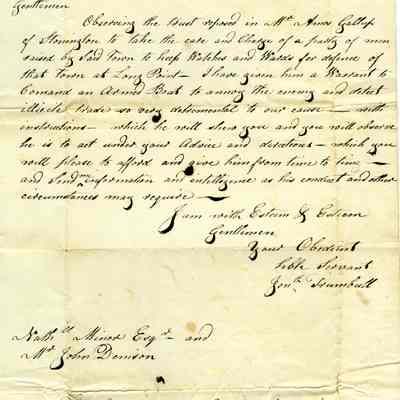 Gentlemen
Observing the trust reposed in Mr. Amos Gallup
of Stonington to take the care and Charge of a party of men
raised by said Town to keep Watches and Wards for defence of
that Town at Long Point — I have given him a Warrant to
Comand an Armed Boat to annoy the enemy and detect
illicit Trade so very detrimental to our cause — with
instructions — which he will shew you and you will observe
he is to act under your Advice and directions — which you
will please to afford and give him from time to time —
and send me information and intelligence as his conduct and other
circumstances may require —
I am with Esteem &
Gentlemen
Your Obedient
hble Servant
Jonth Trumbull
Nathll Minor Esqr. and
Mr John Denison